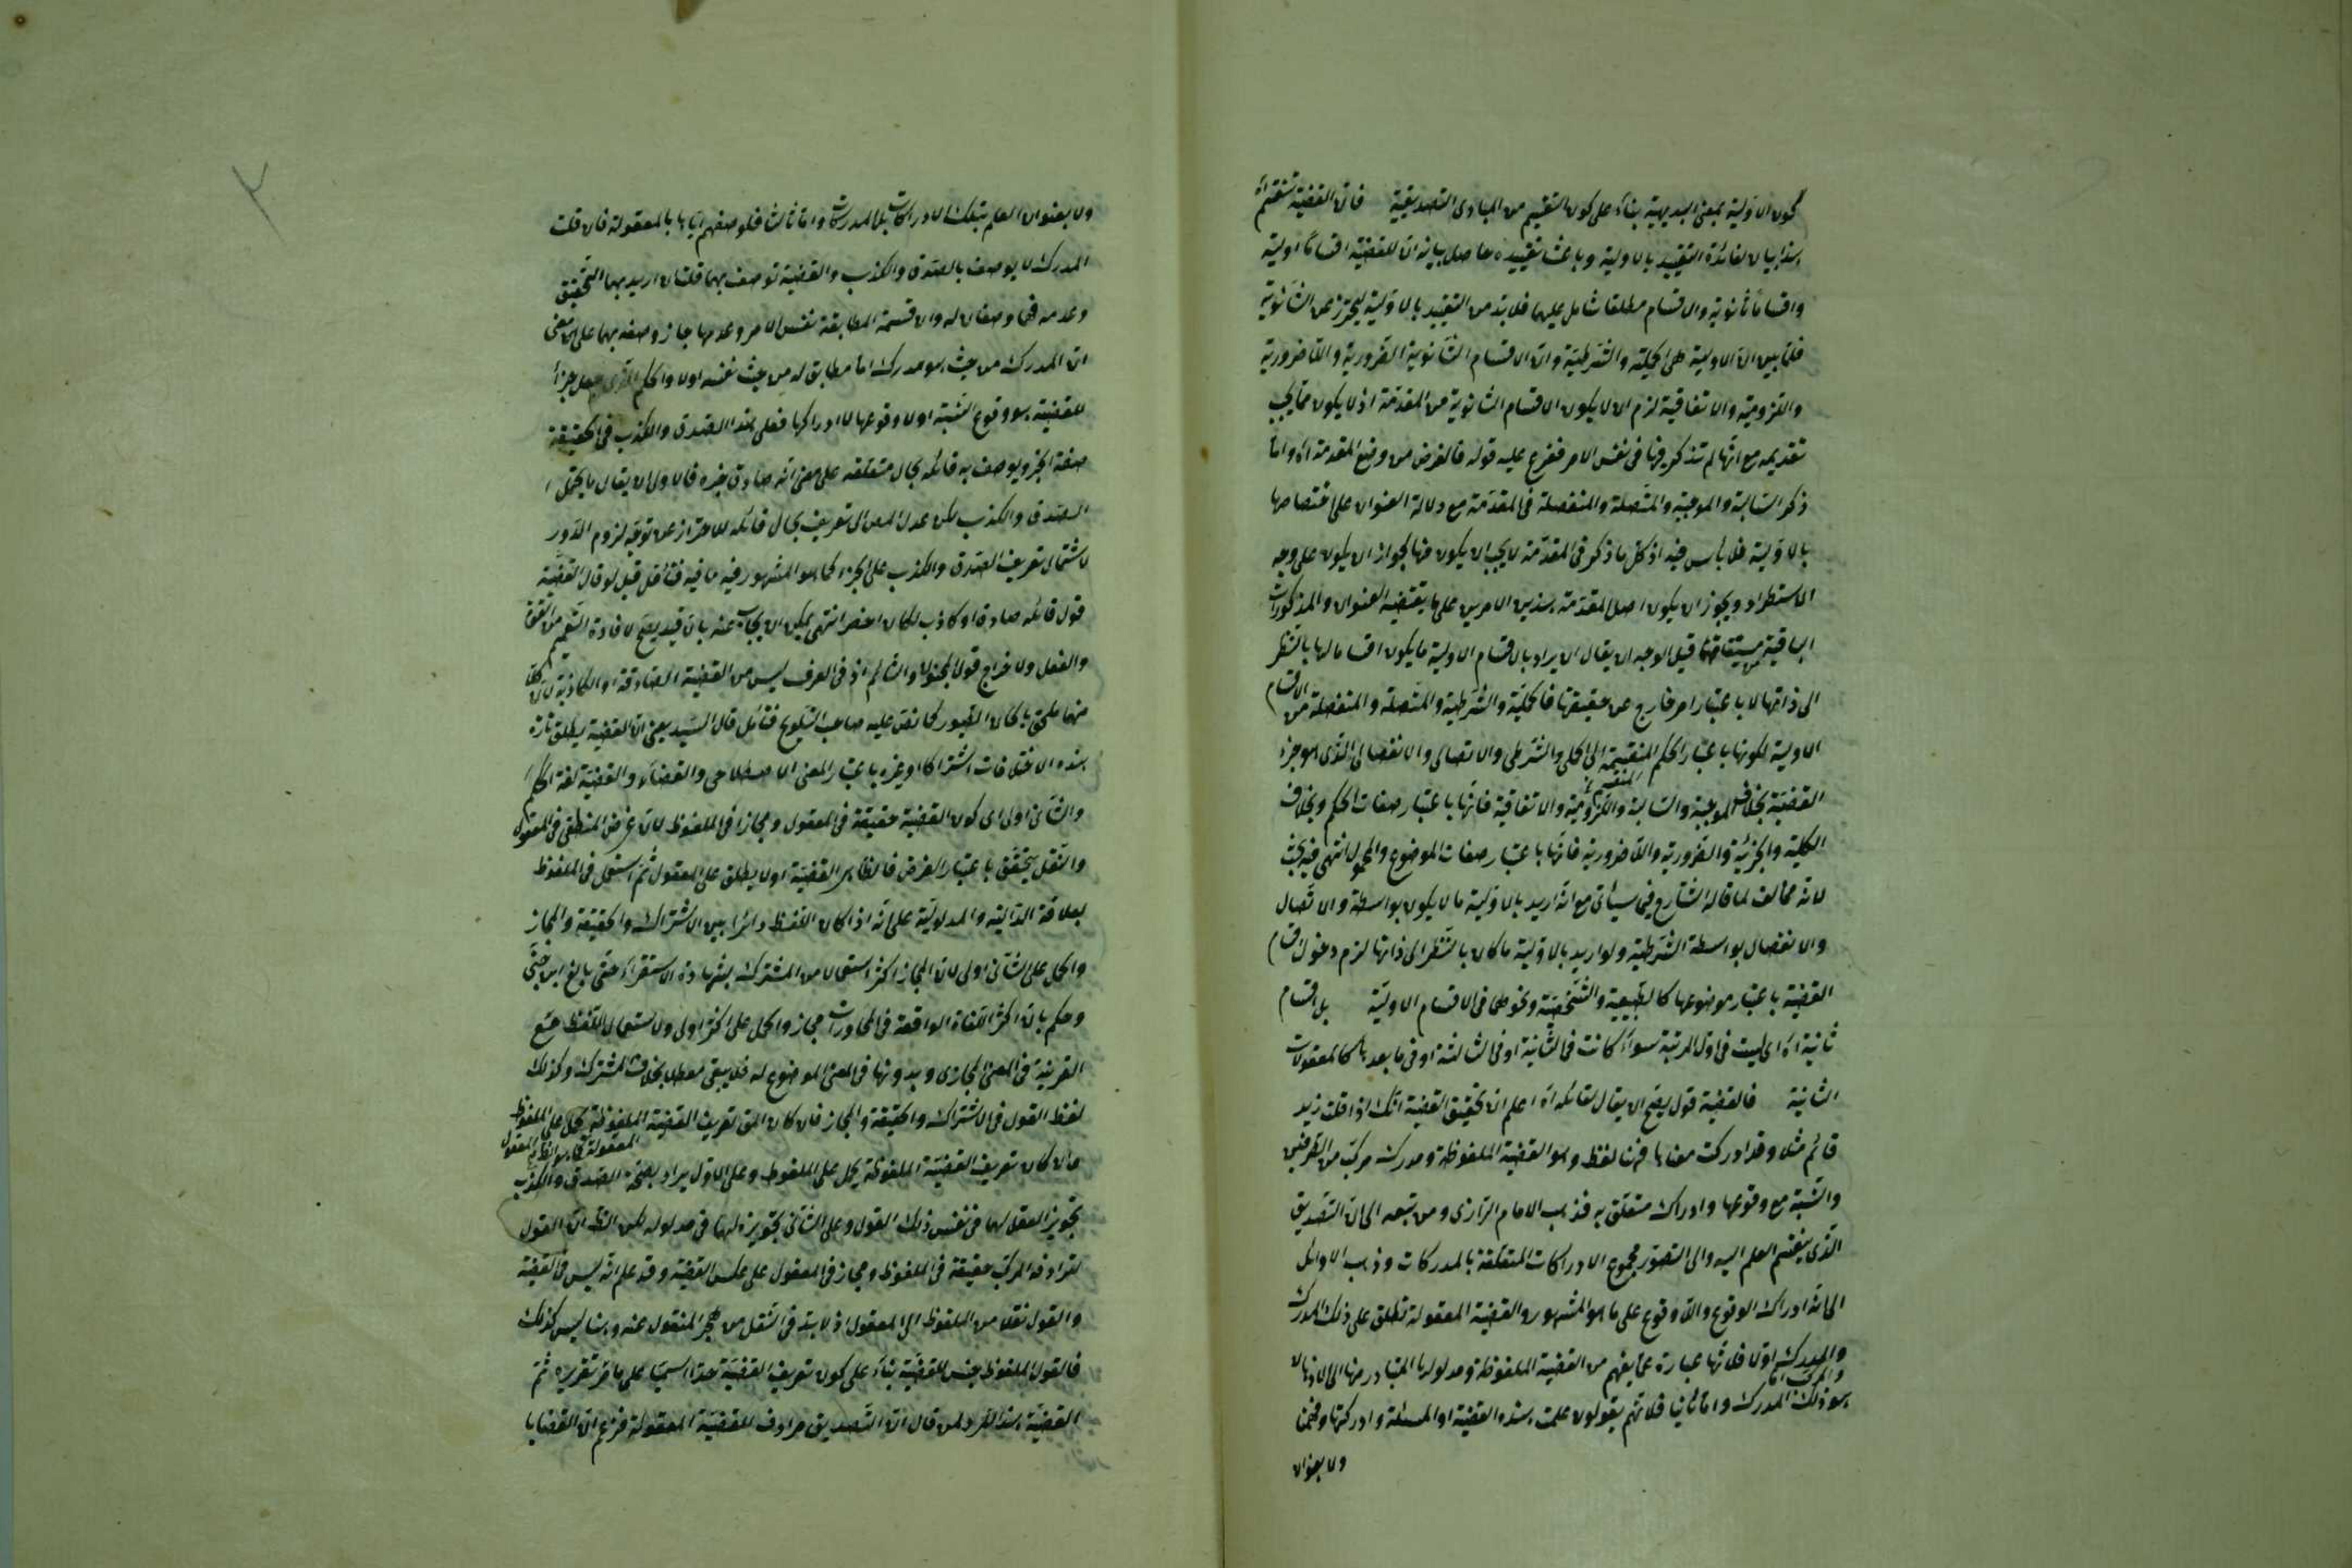 كون الاولية بمعنى البديهية بناء على كون التقسيم من المبادى التصديقية فان القضية تنقسم اه
هذا بيان لفائدة التقييد بالاولية وباعث تقييده حاصل بيانه ان للقضية اقساما اولية
واقساما ثانوية والاقسام مطلقا شامل عليهما فلابد من التقييد بالاولية ليحترز عن الثانوية
فلما بين ان الاولية هى الحملية والشرطية وان الاقسام الثانوية الضرورية واللاضرورية
واللزومية والاتفاقية لزم ان لا يكون الاقسام الثانوية من المقدمة اذ لا يكون مما يجب
تقديمه مع انها لم تذكر فيها فى نفس الامر ففرع عليه قوله فالغرض من وضع المقدمة اه واما
ذكر السالبة والموجبة والمتصلة والمنفصلة فى المقدمة مع دلالة العنوان على اختصاصها
بالاولية فلا بأس فيه اذ كل ما ذكر فى المقدمة لا يجب ان يكون منها لجواز ان يكون على وجه
الاستطراد ويجوز ان يكون اصل المقدمة هذين الامرين على ما يقتضيه العنوان والمذكورات
الباقية قيل الوجه ان يقال ان يراد بالاقسام الاولية ما يكون اقساما لها بالنظر
الى ذاتها لا باعتبار امر خارج عن حقيقتها فالحملية والشرطية والمتصلة والمنفصلة من الاقسام
الاولية لكونها باعتبار الحكم المنقسمة الى الحملى والشرطى والاتصالى والانفصالى الذى هو جزء
القضية بخلاف الموجبة والسالبة واللزومية والاتفاقية فانها باعتبار صفات الحكم وبخلاف
الكلية والجزئية والضرورية واللاضرورية فانها باعتبار صفات الموضوع والمحمول انتهى فيه بحث
لانه مخالف لما قاله الشارح فيما سيأتى مع انه اريد بالاولية ما لا يكون بواسطة والاتصال
والانفصال بواسطة الشرطية ولو اريد بالاولية ما كان بالنظر الى ذاتها لزم دخول اقسام
القضية باعتبار موضوعها كالطبيعية والشخصية ونحوهما فى الاقسام الاولية بل اقسام
ثانية اه اى ليست فى اول المرتبة سواء كانت فى الثانية او فى الثالثة او فى ما بعدها كالمعقولات
الثانية فالقضية قول يصح ان يقال لقائله اه اعلم ان تحقيق القضية انك اذا قلت زيد
قائم مثلا وقد ادركت معناها فهنا لفظ وهو القضية الملفوظة ومدرك مركب من الطرفين
والنسبة مع وقوعها وادراك متعلق به فذهب الامام الرازى ومن تبعه الى ان التصديق
الذى ينقسم العلم اليه والى التصور مجموع الادراكات المتعلقة بالمدركات وذهب الاوائل
الى انه ادراك الوقوع واللاوقوع على ما هو المشهور والقضية المعقولة تطلق على ذلك المدرك
اولا فلانها عبارة عما يفهم من القضية الملفوظة ومدلولها المتبادر منها الى الاذهان
هو ذلك المدرك واما ثانيا فلانهم يقولون علمت هذه القضية او المسئلة وادركتها وفهمنا
ولا بعنوان
ولا بعنوان العلم بتلك الادراكات بل المدركات واما ثالثا فلوصفهم اياها بالمعقولة فان قلت
المدرك لا يوصف بالصدق والكذب والقضية توصف بهما قلت ان اريد بهما التحقيق
وعدمه فهما وصفان له وان قسمة المطابقة نفس الامر وعدمها جاز وصفه بهما على معنى
ان المدرك من حيث هو مدرك اما مطابق له من حيث نفسه او لا والحكم الذى جعل جزأ
للقضية هو وقوع النسبة او لا وقوعها لا ادراكها فعلى هذا الصدق والكذب فى الحقيقة
صفة الخبر ويوصف به قائله بحال متعلقه على معنى انه صادق خبره فالاولى ان يقال ما يحتمل
الصدق والكذب لكن عدل المص الى تعريف بحال قائله للاحتراز عن توهم لزوم الدور
لاشتمال تعريف الصدق والكذب على الخبر كما هو المشهور فيه ما فيه فتأمل قيل لو قال القضية
قول قائله صادق او كاذب لكان اخصر انتهى يمكن ان يجاب عنه بان قيد يصح لافادة التعميم من القوة
والفعل ولاخراج قول المجنون والنائم اذ فى العرف ليس من القضية الصادقة او الكاذبة لان كلا
منهما ملحق بالحان الطيور كما نص عليه صاحب التلويح فتأمل قال السيد يعنى ان القضية يطلق تارة
هذه الاختلافات اشتراكا او غيره باعتبار المعنى الاصطلاحى والقضاء والقضية لغة الحكم
والثانى اولى اى كون القضية حقيقة فى المعقول ومجازا فى الملفوظ لان غرض المنطقى فى المعقول
والنقل يتحقق باعتبار الغرض فالظاهر القضية اولا يطلق على المعقول ثم استعمل فى الملفوظ
بعلاقة الدالية والمدلولية على انه اذا كان اللفظ دائرا بين الاشتراك والحقيقة والمجاز
والحمل على الثانى اولى لان المجاز اكثر استعمالا من المشترك بشهادة الاستقراء حتى بالغ ابن جنى
وحكم بان اكثر اللغات الواقعة فى المحاورات مجاز والحمل على اكثر اولى ولاستعمال اللفظ مع
القرينة فى المعنى المجازى وبدونها فى المعنى الموضوع له فلا يبقى معطلا بخلاف المشترك وكذلك
لفظ القول فى الاشتراك والحقيقة والمجاز فان كان المق تعريف القضية
المعقولة
وان كان تعريف القضية الملفوظة يحمل على الملفوظ وعلى الاول يراد بصحة الصدق والكذب
تجويز العقل لهما فى نفس ذلك القول وعلى الثانى تجويزه لهما فى مدلوله لكن الظ ان القول
لترادفه المركب حقيقة فى الملفوظ ومجاز فى المعقول على عكس القضية وقد علم انه ليس فى القضية
والقول نقلا من الملفوظ الى المعقول اذ لابد فى النقل من هجر المنقول عنه وهنا ليس كذلك
فالقول الملفوظ جنس للقضية بناء على كون تعريف القضية حدا اسميا على ما مر تقريره ثم
القضية هذا لرد لمن قال ان التصديق مرادف للقضية المعقولة فزعم ان القضايا